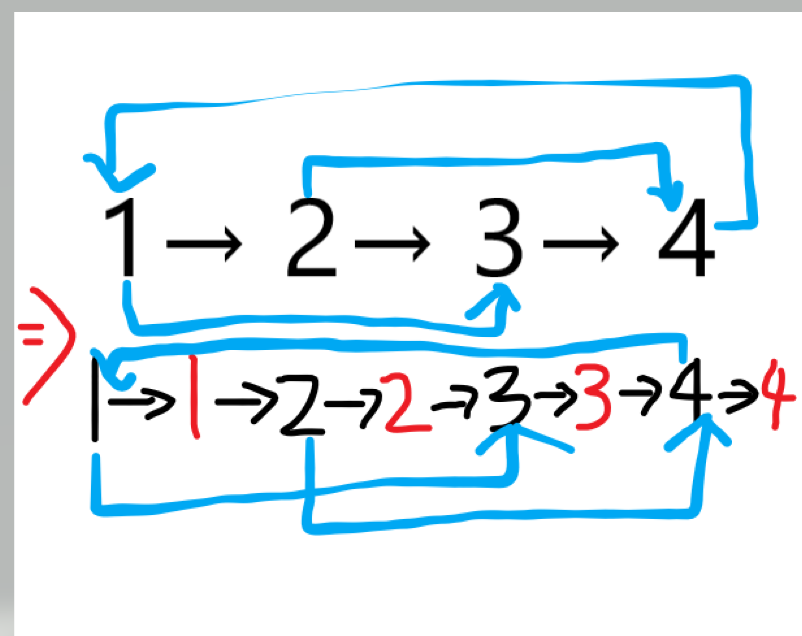 1 → 2 → 3 → 4
⇒ 1 → 1 → 2 → 2 → 3 → 3 → 4 → 4